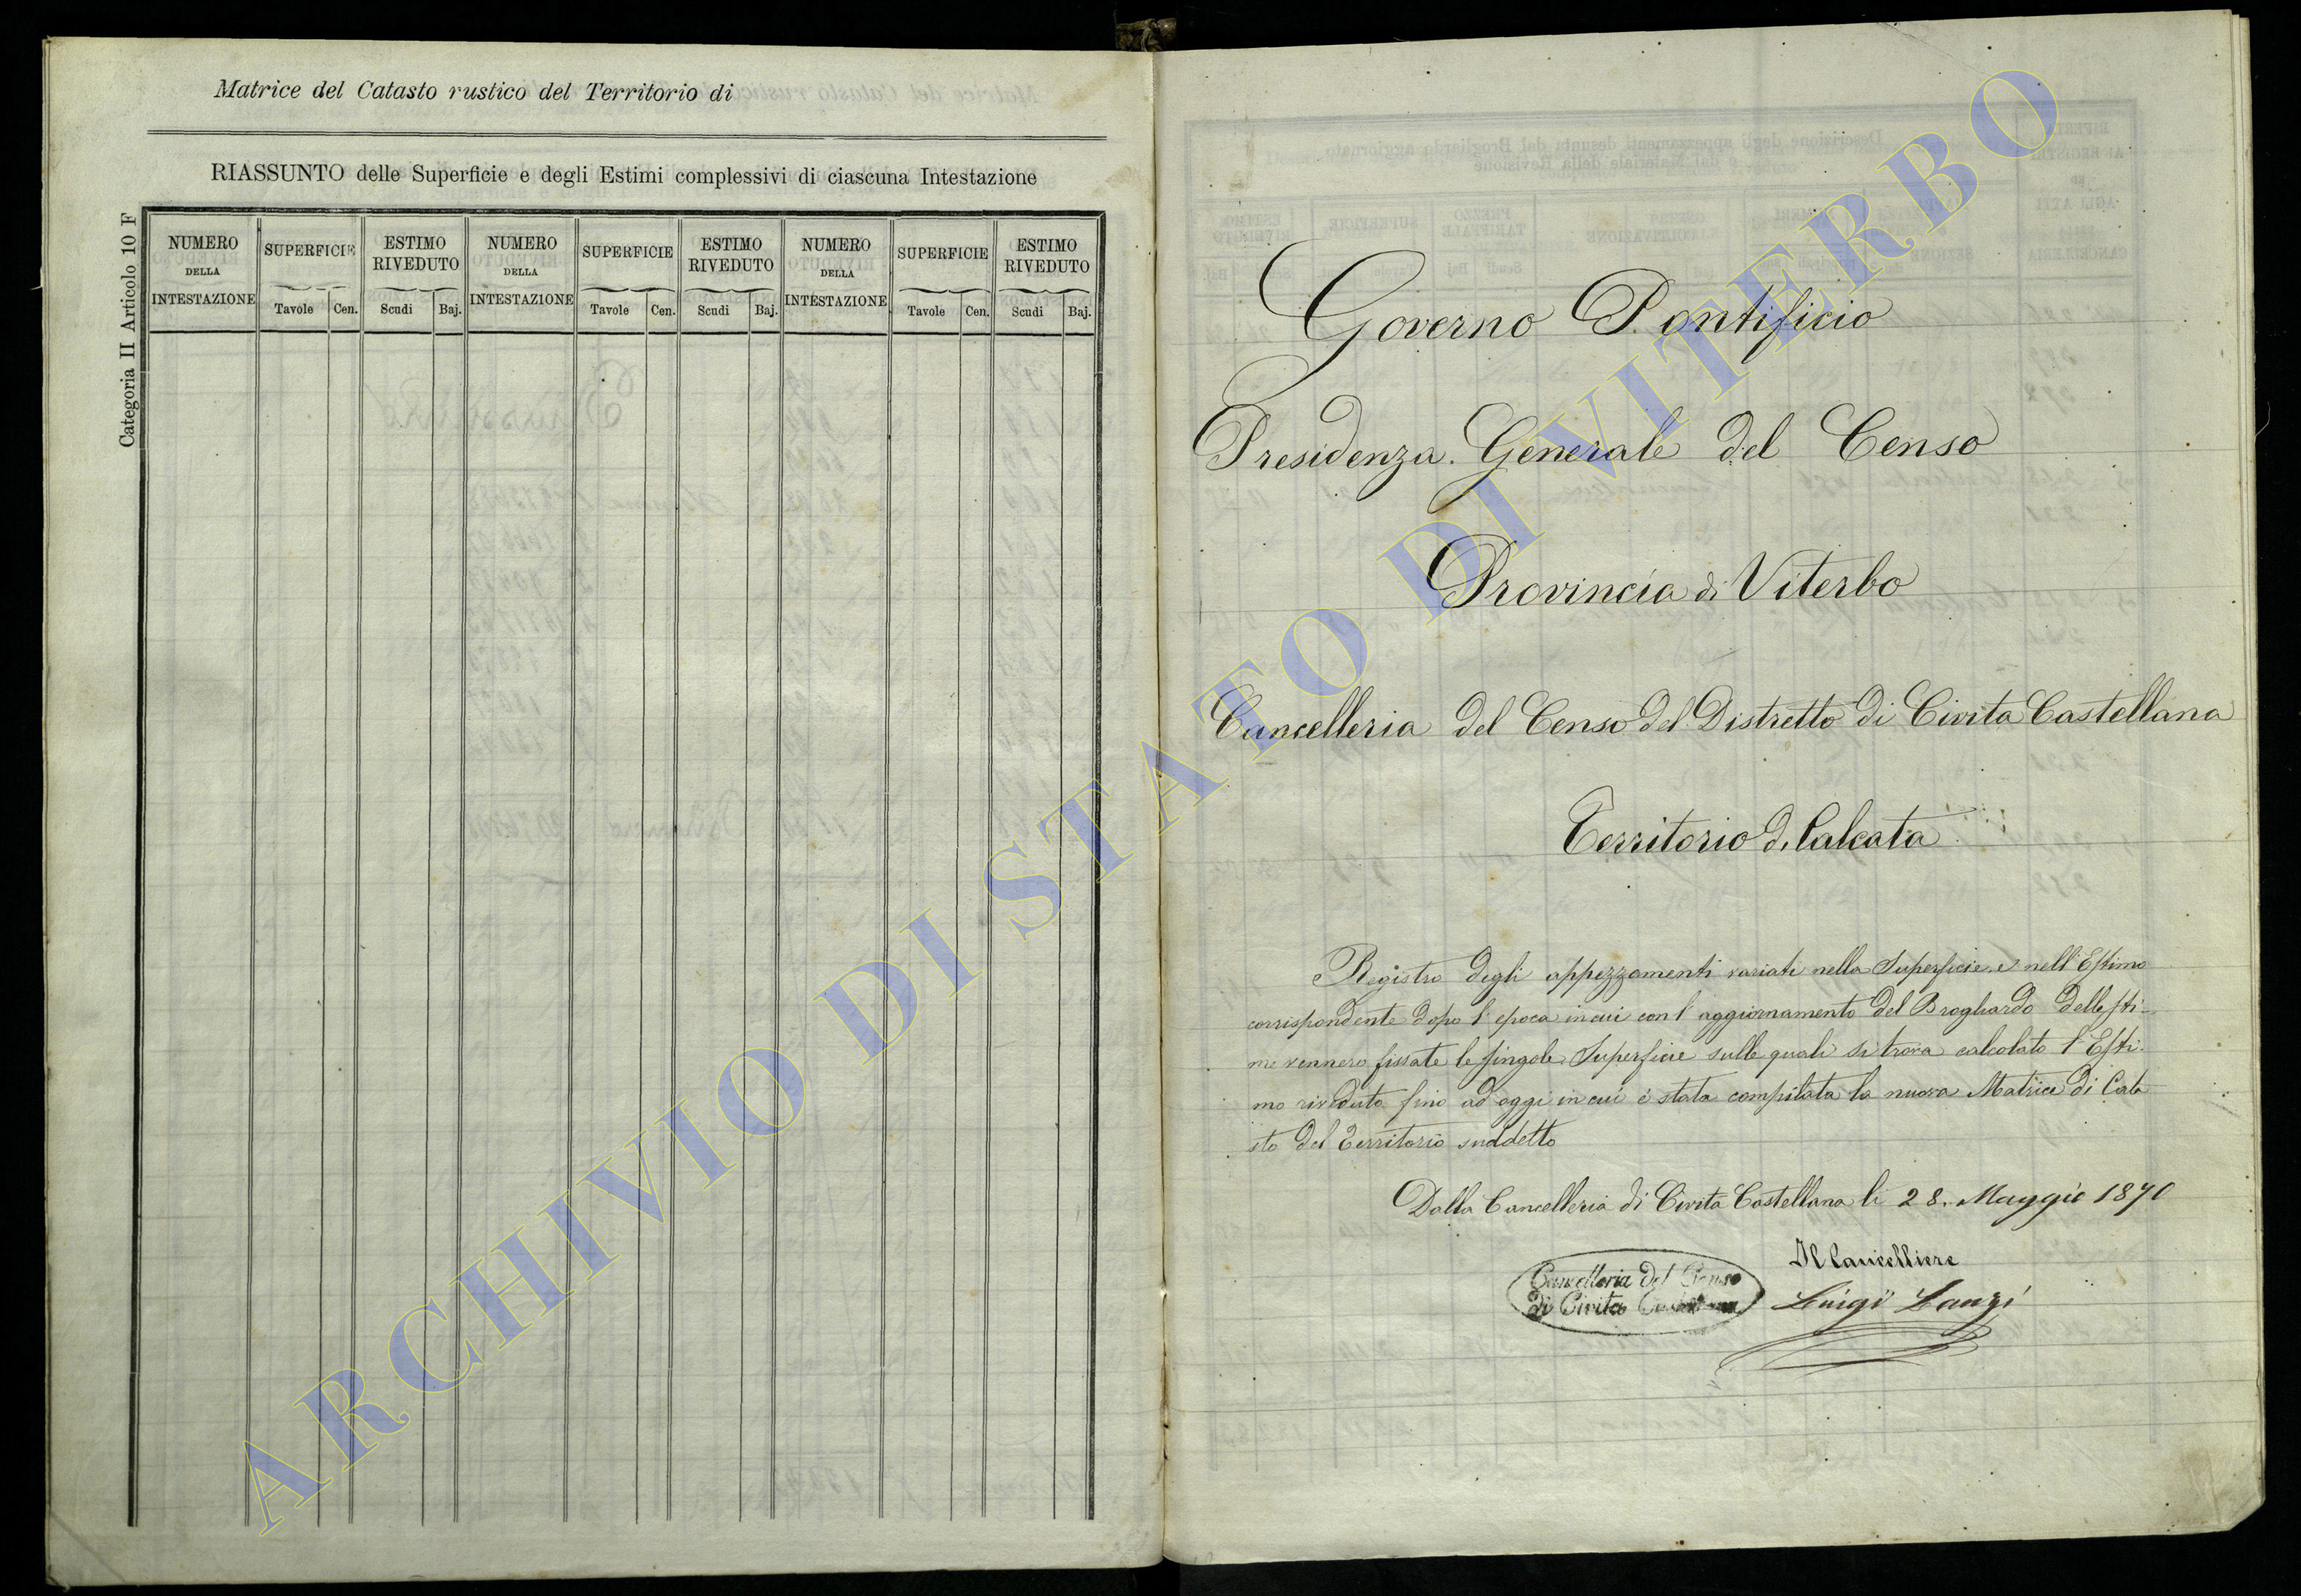 Matrice del Catasto rustico del Territorio di
RIASSUNTO delle Superficie e degli Estimi complessivi di ciascuna Intestazione
Categoria II Articolo 10 F
NUMERO DELLA INTESTAZIONE SUPERFICIE ESTIMO RIVEDUTO NUMERO DELLA INTESTAZIONE SUPERFICIE ESTIMO RIVEDUTO NUMERO DELLA INTESTAZIONE SUPERFICIE ESTIMO RIVEDUTO
Tavole Cen. Scudi Baj. Tavole Cen. Scudi Baj. Tavole Cen. Scudi Baj.
Governo Pontificio
Presidenza Generale del Censo
Provincia di Viterbo
Cancelleria del Censo del Distretto di Civita Castellana
Territorio di Calcata
Registro degli appezzamenti variati nella Superficie e nell'Estimo
corrispondente dopo l'epoca in cui con l'aggiornamento del Brogliardo delle sti-
me vennero fissate le singole Superficie sulle quali si trova calcolato l'Esti-
mo riveduto fino ad oggi in cui è stata compilata la nuova Matrice di Cata
sto del Territorio suddetto
Dalla Cancelleria di Civita Castellana li 28. Maggio 1870
Il Cancelliere
Cancelleria del Censo
di Civita Castellana
Luigi Lanzi
ARCHIVIO DI STATO DI VITERBO